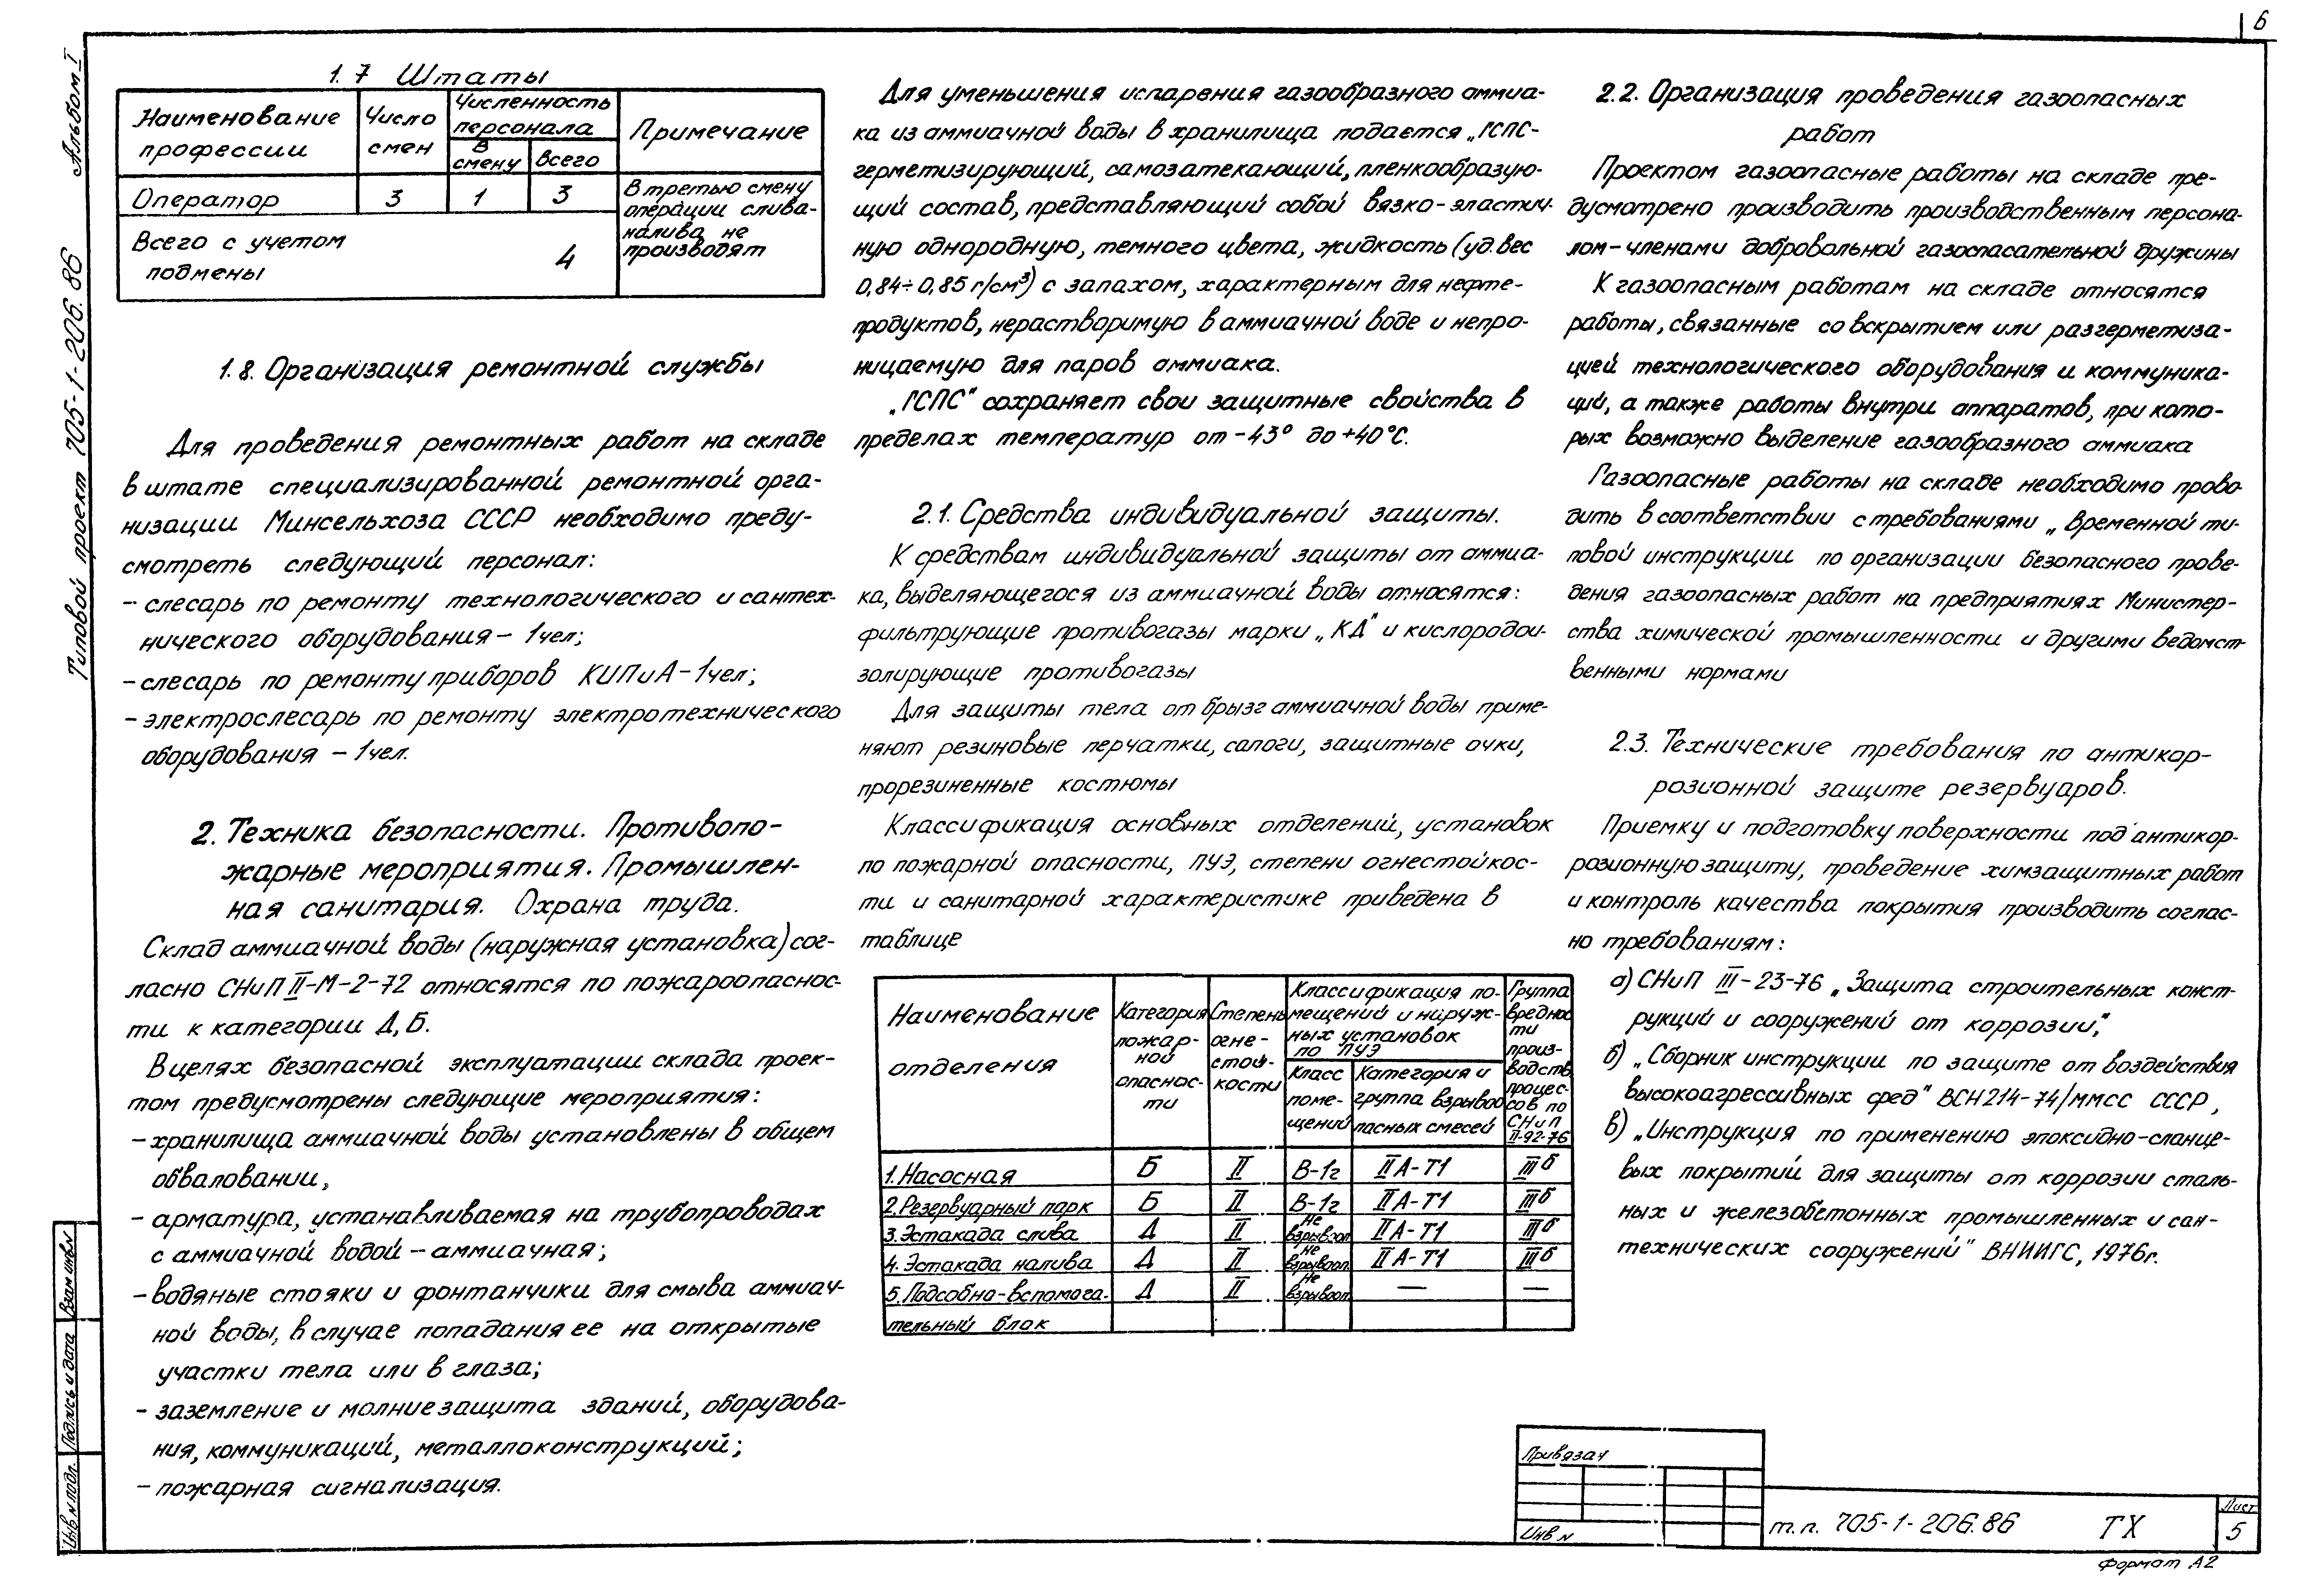 6
Альбом I
Типовой проект 705-1-206.86
1.7 Штаты
Наименование профессии
Число смен
Численность персонала
В смену
всего
Примечание
Оператор 3 1 3
В третью смену
операции слива-
налива не
производят
Всего с учетом
подмены 4
1.8. Организация ремонтной службы
Для проведения ремонтных работ на складе
в штате специализированной ремонтной орга-
низации Минсельхоза СССР необходимо преду-
смотреть следующий персонал:
- слесарь по ремонту технологического и сантех-
нического оборудования - 1чел;
- слесарь по ремонту приборов КИПиА - 1чел;
- электрослесарь по ремонту электротехнического
оборудования - 1чел.
2. Техника безопасности. Противопо-
жарные мероприятия. Промышлен-
ная санитария. Охрана труда.
Склад аммиачной воды (наружная установка) сог-
ласно СНиП II-М-2-72 относятся по пожароопаснос-
ти к категории Д, Б.
В целях безопасной эксплуатации склада проек-
том предусмотрены следующие мероприятия:
- хранилища аммиачной воды установлены в общем
обваловании,
- арматура, устанавливаемая на трубопроводах
с аммиачной водой - аммиачная;
- водяные стояки и фонтанчики для смыва аммиач-
ной воды, в случае попадания ее на открытые
участки тела или в глаза;
- заземление и молниезащита зданий, оборудова-
ния, коммуникаций, металлоконструкций;
- пожарная сигнализация.
Для уменьшения испарения газообразного аммиа-
ка из аммиачной воды в хранилища подается „ГСПС-
герметизирующий, самозатекающий, пленкообразую-
щий состав, представляющий собой вязко-эластич-
ную однородную, темного цвета, жидкость (уд. вес
0,84÷0,85 г/см³) с запахом, характерным для нефте-
продуктов, нерастворимую в аммиачной воде и непро-
ницаемую для паров аммиака.
„ГСПС" сохраняет свои защитные свойства в
пределах температур от -43° до +40°С.
2.1. Средства индивидуальной защиты.
К средствам индивидуальной защиты от аммиа-
ка, выделяющегося из аммиачной воды относятся:
фильтрующие противогазы марки „КД" и кислородои-
золирующие противогазы
Для защиты тела от брызг аммиачной воды приме-
няют резиновые перчатки, сапоги, защитные очки,
прорезиненные костюмы
Классификация основных отделений, установок
по пожарной опасности, ПУЭ, степени огнестойкос-
ти и санитарной характеристике приведена в
таблице
Наименование отделения
Категория пожар-ной опаснос-ти
Степень огне-стой-кости
Классификация по-мещений и наруж-ных установок по ПУЭ
Класс поме-щений
Категория и группа взрывоо пасных смесей
Группа вреднос ти произ-водств. процес-сов по СНиП II-92-76
1. Насосная Б II В-1г IIА-Т1 III б
2. Резервуарный парк Б II В-1г IIА-Т1 III б
3. Эстакада слива Д II Не взрывооп. IIА-Т1 III б
4. Эстакада налива Д II Не взрывооп. IIА-Т1 III б
5. Подсобно-вспомога- Д II Не взрывооп. — —
тельный блок
2.2. Организация проведения газоопасных
работ
Проектом газоопасные работы на складе пре-
дусмотрено производить производственным персона-
лом-членами добровольной газоспасательной дружины
К газоопасным работам на складе относятся
работы, связанные со вскрытием или разгерметиза-
цией технологического оборудования и коммуника-
ций, а также работы внутри аппаратов, при кото-
рых возможно выделение газообразного аммиака
Газоопасные работы на складе необходимо прово-
дить в соответствии с требованиями „Временной ти-
повой инструкции по организации безопасного прове-
дения газоопасных работ на предприятиях Министер-
ства химической промышленности и другими ведомст-
венными нормами
2.3. Технические требования по антикор-
розионной защите резервуаров.
Приемку и подготовку поверхности под антикор-
розионную защиту, проведение химзащитных работ
и контроль качества покрытия производить соглас-
но требованиям:
а) СНиП III-23-76 „Защита строительных конст-
рукций и сооружений от коррозии",
б) „Сборник инструкции по защите от воздействия
высокоагрессивных сред" ВСН214-74/ММСС СССР,
в) „Инструкция по применению эпоксидно-сланце-
вых покрытий для защиты от коррозии сталь-
ных и железобетонных промышленных и сан-
технических сооружений" ВНИИГС, 1976г.
Взам инв.N
Подпись и дата
Инв.N подл.
Привязан
Инв N
т.п. 705-1-206.86 ТХ
Лист
5
Формат А2